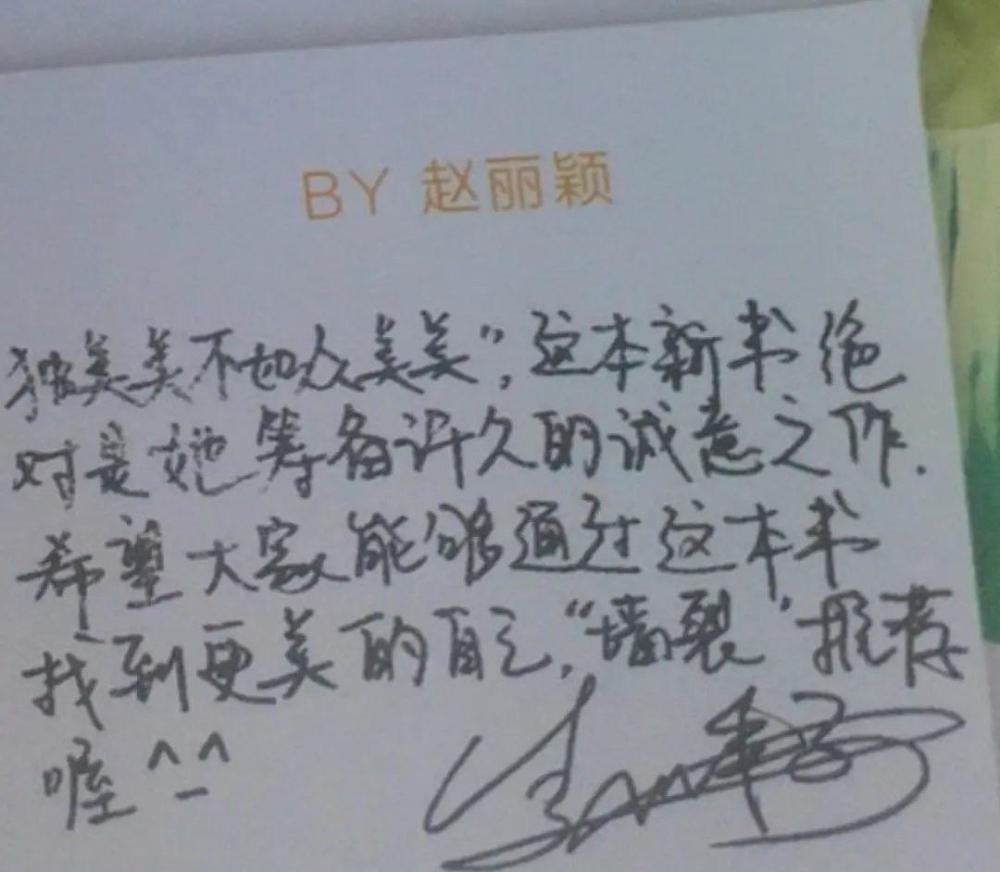 BY 赵丽颖
独美美不如众美美”,这本新书绝
对是她筹备许久的诚意之作.
希望大家能够通过这本书
找到更美的自己,“墙裂”推荐
喔^_^